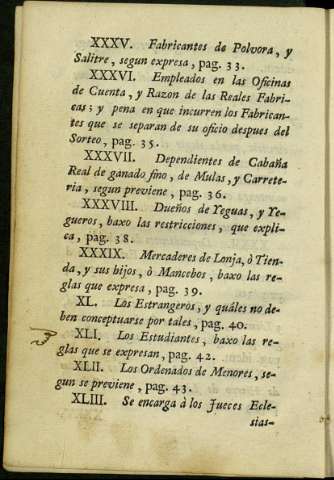 XXXV. Fabricantes de Polvora, y
Salitre, segun expresa, pag. 33.
XXXVI. Empleados en las Oficinas
de Cuenta, y Razon de las Reales Fabri-
cas; y pena en que incurren los Fabrican-
tes que se separan de su oficio despues del
Sorteo, pag. 35.
XXXVII. Dependientes de Cabaña
Real de ganado fino, de Mulas, y Carrete-
ria, segun previene, pag. 36.
XXXVIII. Dueños de Yeguas, y Ye-
gueros, baxo las restricciones, que expli-
ca, pag. 38.
XXXIX. Mercaderes de Lonja, ò Tien-
da, y sus hijos, ò Mancebos, baxo las re-
glas que expresa, pag. 39.
XL. Los Estrangeros, y quáles no de-
ben conceptuarse por tales, pag. 40.
XLI. Los Estudiantes, baxo las re-
glas que se expresan, pag. 42.
XLII. Los Ordenados de Menores, se-
gun se previene, pag. 43.
XLIII. Se encarga à los Jueces Ecle-
sias-